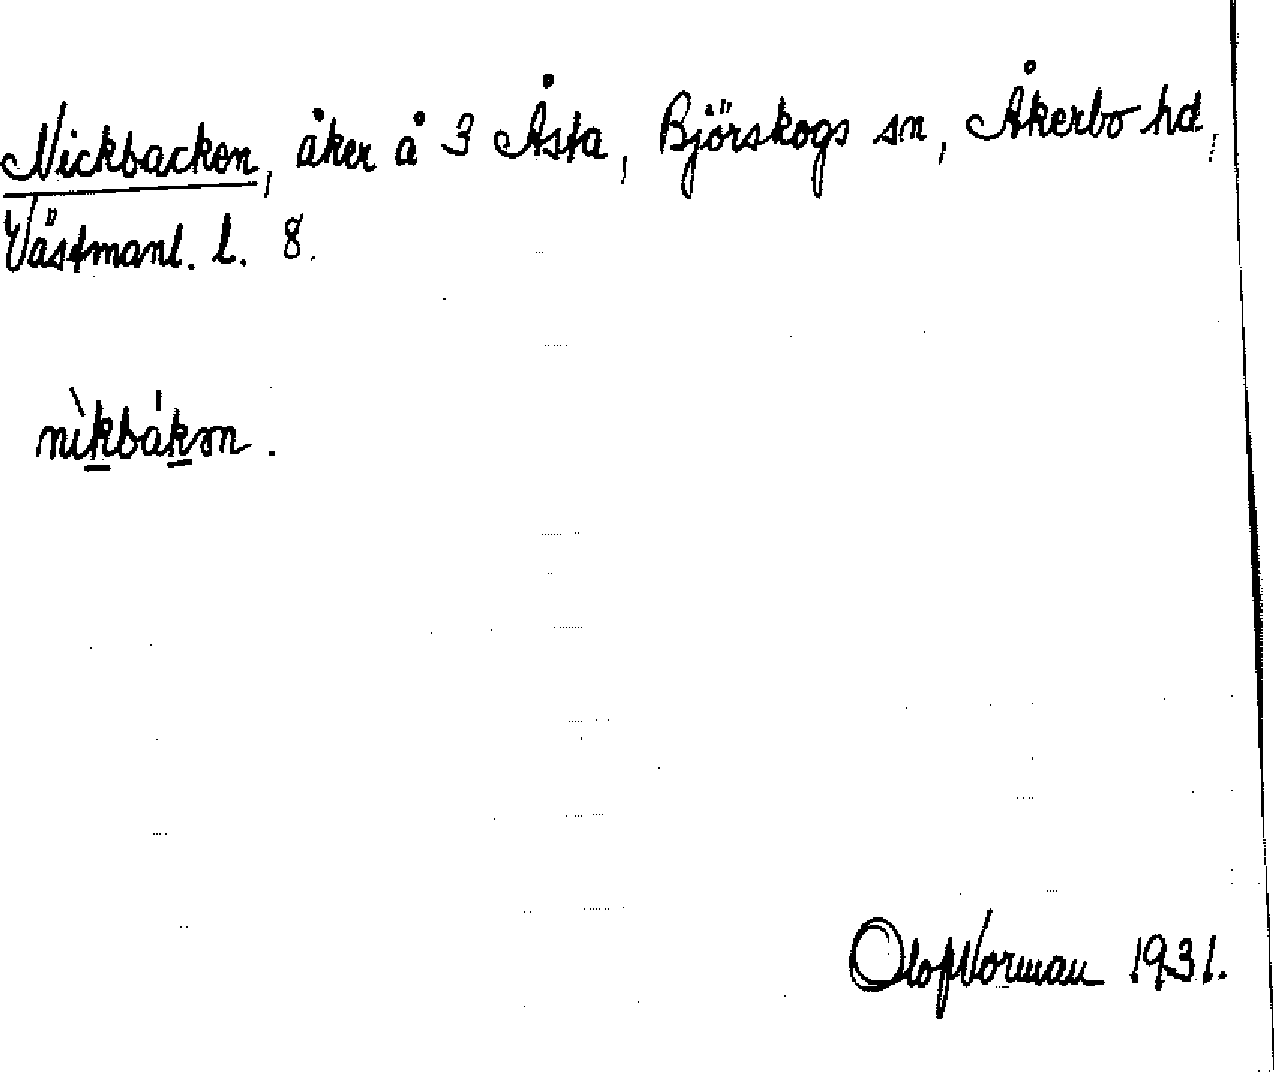 Nickbacken, åker å 3 Åsta, Björskogs sn, Åkerbo hd,
Västmanl. l. 8.
nìkbákən.
Olof Norman 1931.